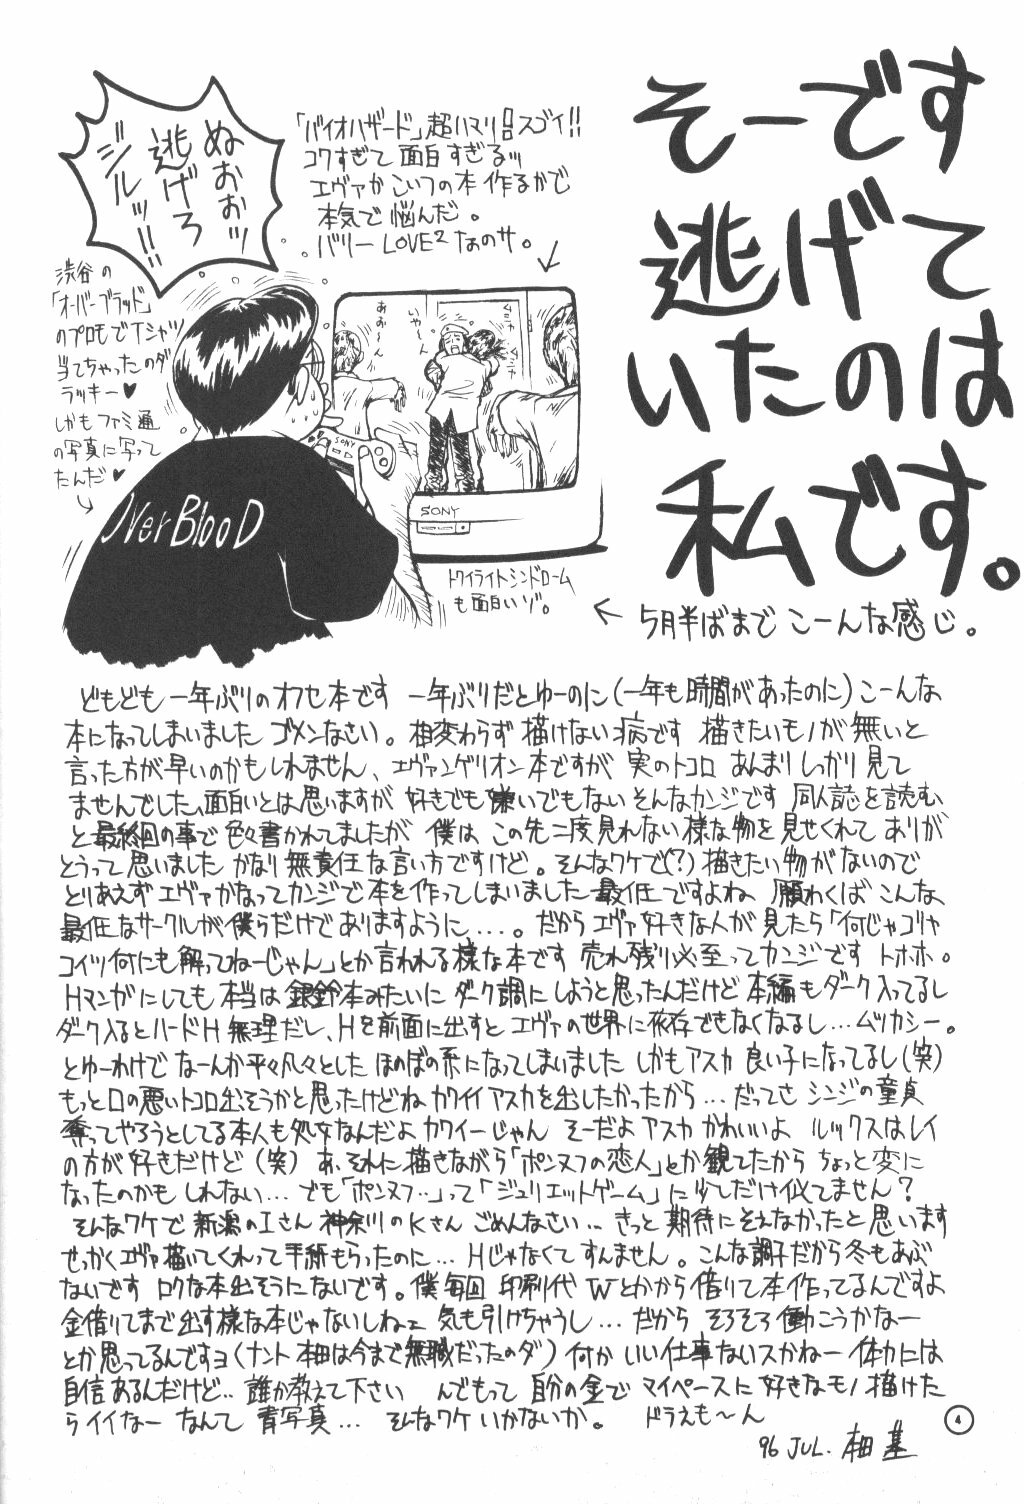 そーです
逃げて
いたのは
私です。
「バイオハザード」超ハマリ スゴイ!!
コワすぎて面白すぎるッ
エヴァかこいつの本作るかで
本気で悩んだ。
バリーLOVE2なのサ。
ぬおぉッ
逃げろ
ジルッ!!
渋谷の
「オーバーブラッド」
のプロモでTシャツ
当てちゃったのダ
ラッキー♥
しかもファミ通
の写真に写って
たんだ♥
いや〜ん
あぉ〜ん
SONY
OverBlooD
SONY
トワイライトシンドローム
も面白いゾ。
← 5月半ばまで こーんな感じ。
どもども 一年ぶりのオフセ本です 一年ぶりだとゆーのに(一年も時間があったのに)こーんな
本になってしまいました ゴメンなさい。相変わらず描けない病です 描きたいモノが無いと
言った方が早いのかもしれません、エヴァンゲリオン本ですが 実のトコロ あんまりしっかり見て
ませんでした、面白いとは思いますが 好きでも嫌いでもないそんなカンジです 同人誌を読む
と最終回の事で色々書かれてましたが 僕は この先二度見れない様な物を見せくれて ありが
とうって思いました かなり無責任な言い方ですけど。そんなワケで(?)描きたい物がないので
とりあえずエヴァかなってカンジで本を作ってしまいました 最低ですよね 願わくば こんな
最低なサークルが僕らだけでありますように....。だからエヴァ好きな人が見たら「何じゃゴリャ
コイツ何にも解ってねーじゃん」とか言われる様な本です 売れ残り必至ってカンジです トホホ。
Hマンガにしても本当は銀鈴本みたいに ダーク調にしようと思ったんだけど 本編もダーク入ってるし
ダーク入るとハードH無理だし、Hを前面に出すと エヴァの世界に依存できなくなるし...ムツカシー。
とゆーわけで なーんか平々凡々とした ほのぼの系になってしまいました しかもアスカ 良い子になってるし(笑)
もっと口の悪いトコロ出そうかと思ったけどね カワイイ アスカを出したかったから...だってさ シンジの童貞
奪ってやろうとしてる本人も処女なんだよ カワイーじゃん そーだよ アスカ かわいいよ ルックスはレイ
の方が好きだけど(笑) あ、それに描きながら「ポンヌフの恋人」とか観てたから ちょっと変に
なったのかも しれない... でも「ポンヌフ‥」って「ジュリエットゲーム」に少しだけ似てません?
そんなワケで 新潟のIさん 神奈川のKさん ごめんなさい‥ きっと 期待にそえなかったと思います
せっかくエヴァ描いてくれって手紙もらったのに... Hじゃなくて すんません。こんな調子だから冬もあぶ
ないです ロクな本出そうにないです。僕毎回 印刷代 Wとかから借りて本作ってるんですよ
金借りてまで出す様な本じゃないしねェ 気も引けちゃうし... だから そろそろ働こうかなー
とか思ってるんですヨ(ナント 本田は今まで無職だったのダ) 何か いい仕事ないスかねー 体力には
自信あるんだけど‥ 誰か教えて下さい んでもって 自分の金で マイペースに好きなモノ描けた
らイイなー なんて 青写真... そんなワケいかないか。 ドラえも〜ん
96 JUL.
4